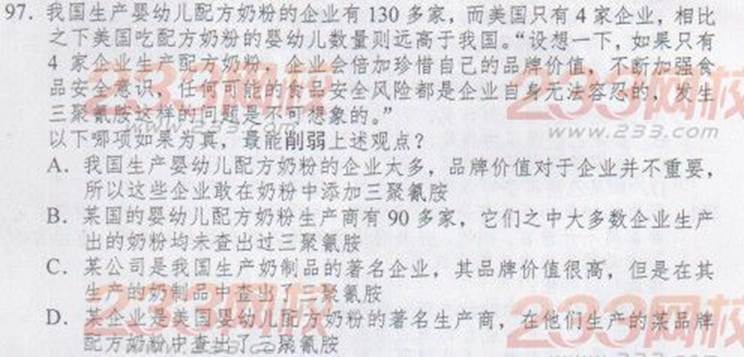 97. 我国生产婴幼儿配方奶粉的企业有 130 多家，而美国只有 4 家企业，相比
之下美国吃配方奶粉的婴幼儿数量则远高于我国。“设想一下，如果只有
4 家企业生产配方奶粉，企业会倍加珍惜自己的品牌价值，不断加强食
品安全意识，任何可能的食品安全风险都是企业自身无法容忍的，发生
三聚氰胺这样的问题是不可想象的。”
以下哪项如果为真，最能削弱上述观点？
A. 我国生产婴幼儿配方奶粉的企业太多，品牌价值对于企业并不重要，
所以这些企业敢在奶粉中添加三聚氰胺
B. 某国的婴幼儿配方奶粉生产商有 90 多家，它们之中大多数企业生产
出的奶粉均未查出过三聚氰胺
C. 某公司是我国生产奶制品的著名企业，其品牌价值很高，但是在其
生产的奶制品中查出了三聚氰胺
D. 某企业是美国婴幼儿配方奶粉的著名生产商，在他们生产的某品牌
配方奶粉中查出了三聚氰胺
233网校
www.233.com
233网校
www.233.com
233网校
233网校